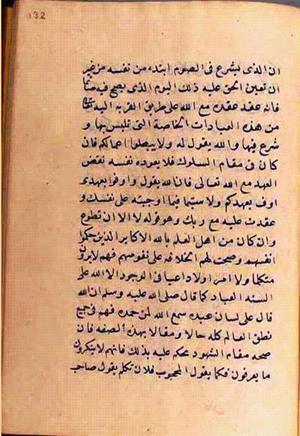 132
ان الذى يشرع فى الصوم ابتداء من نفسه من غير
ان تعين الحق عليه ذلك اليوم الذى يصبح فيه صائما
فانه عقد عقده مع الله على طريق القربة اليه تعالى
من هذه العبادات الخاصة التى تلبس بها و
شرع فيها والله يقول له ولا تبطلوا اعمالكم فان
كان فى مقام السلوك فلا يعود نفسه نقض
العهد مع الله تعالى فان الله يقول واوفوا بعهدى
اوف بعهدكم ولا سيما فيما اوجبته على نفسك و
عقدت عليه مع ربك وهو قوله لا الا ان تطوع
وان كان من اهل العلم بالله الاكابر الذين حكموا
انفسهم وصحت لهم الخلافة على نفوسهم فهم لا يرون
متكلما ولا آمرا ولا داعيا فى الوجود الا الله على
السنة العباد كما قال صلى الله عليه وسلم ان الله
قال على لسان عبده سمع الله لمن حمده فهم فى جميع
نطق العالم كله حالا ومقالا بهذه الصفة فان
صحة مقام الشهود تحكم عليه بذلك فانهم لا ينكرون
ما يعرفون فكما يقول المحجوب فلان تكلم يقول صاحب